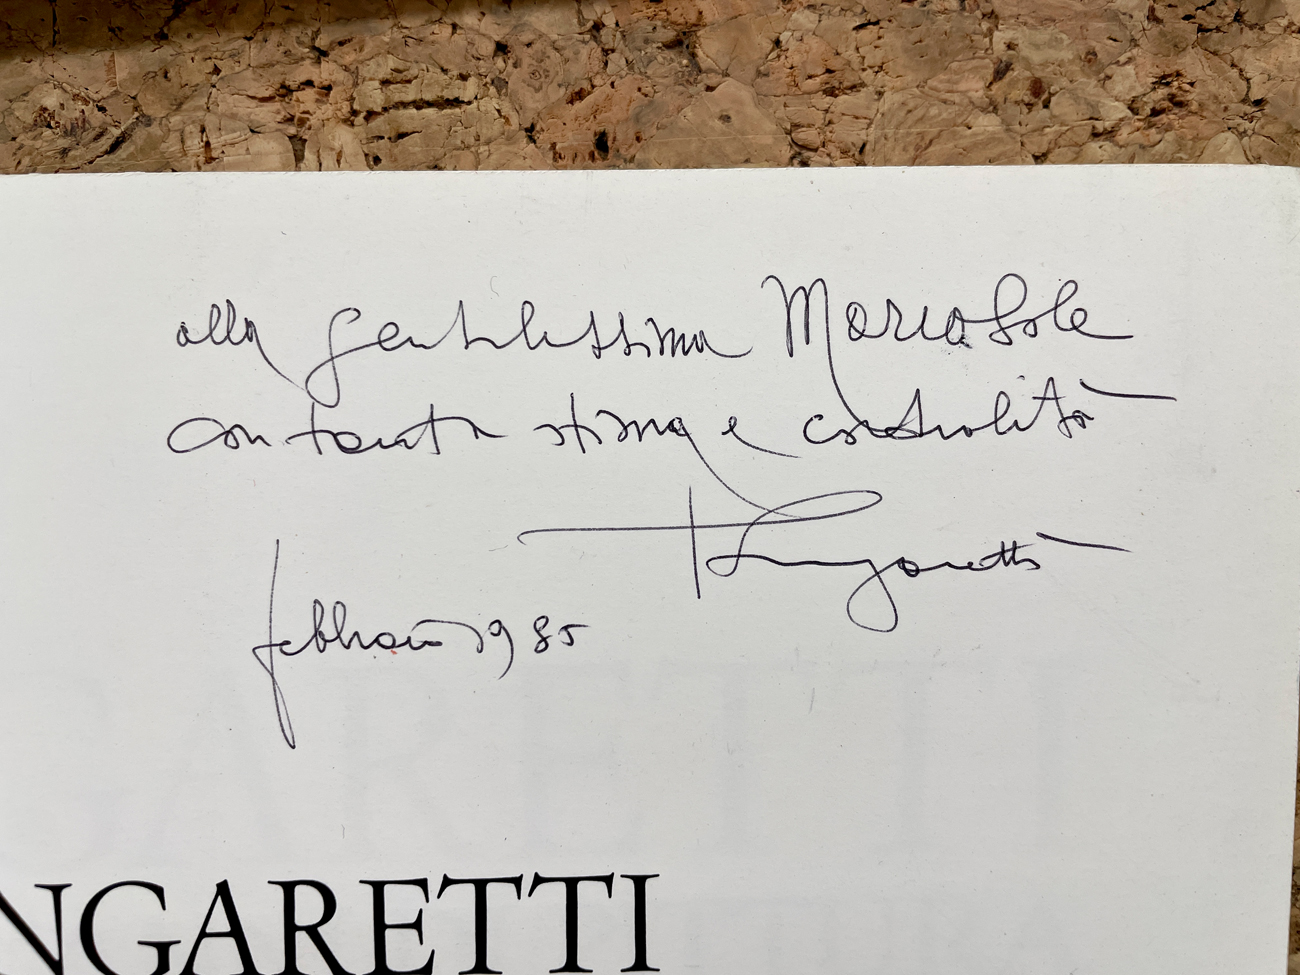 alla gentilissima Mariasole
con tanta stima e cordialità
febbraio 1985
NGARETTI